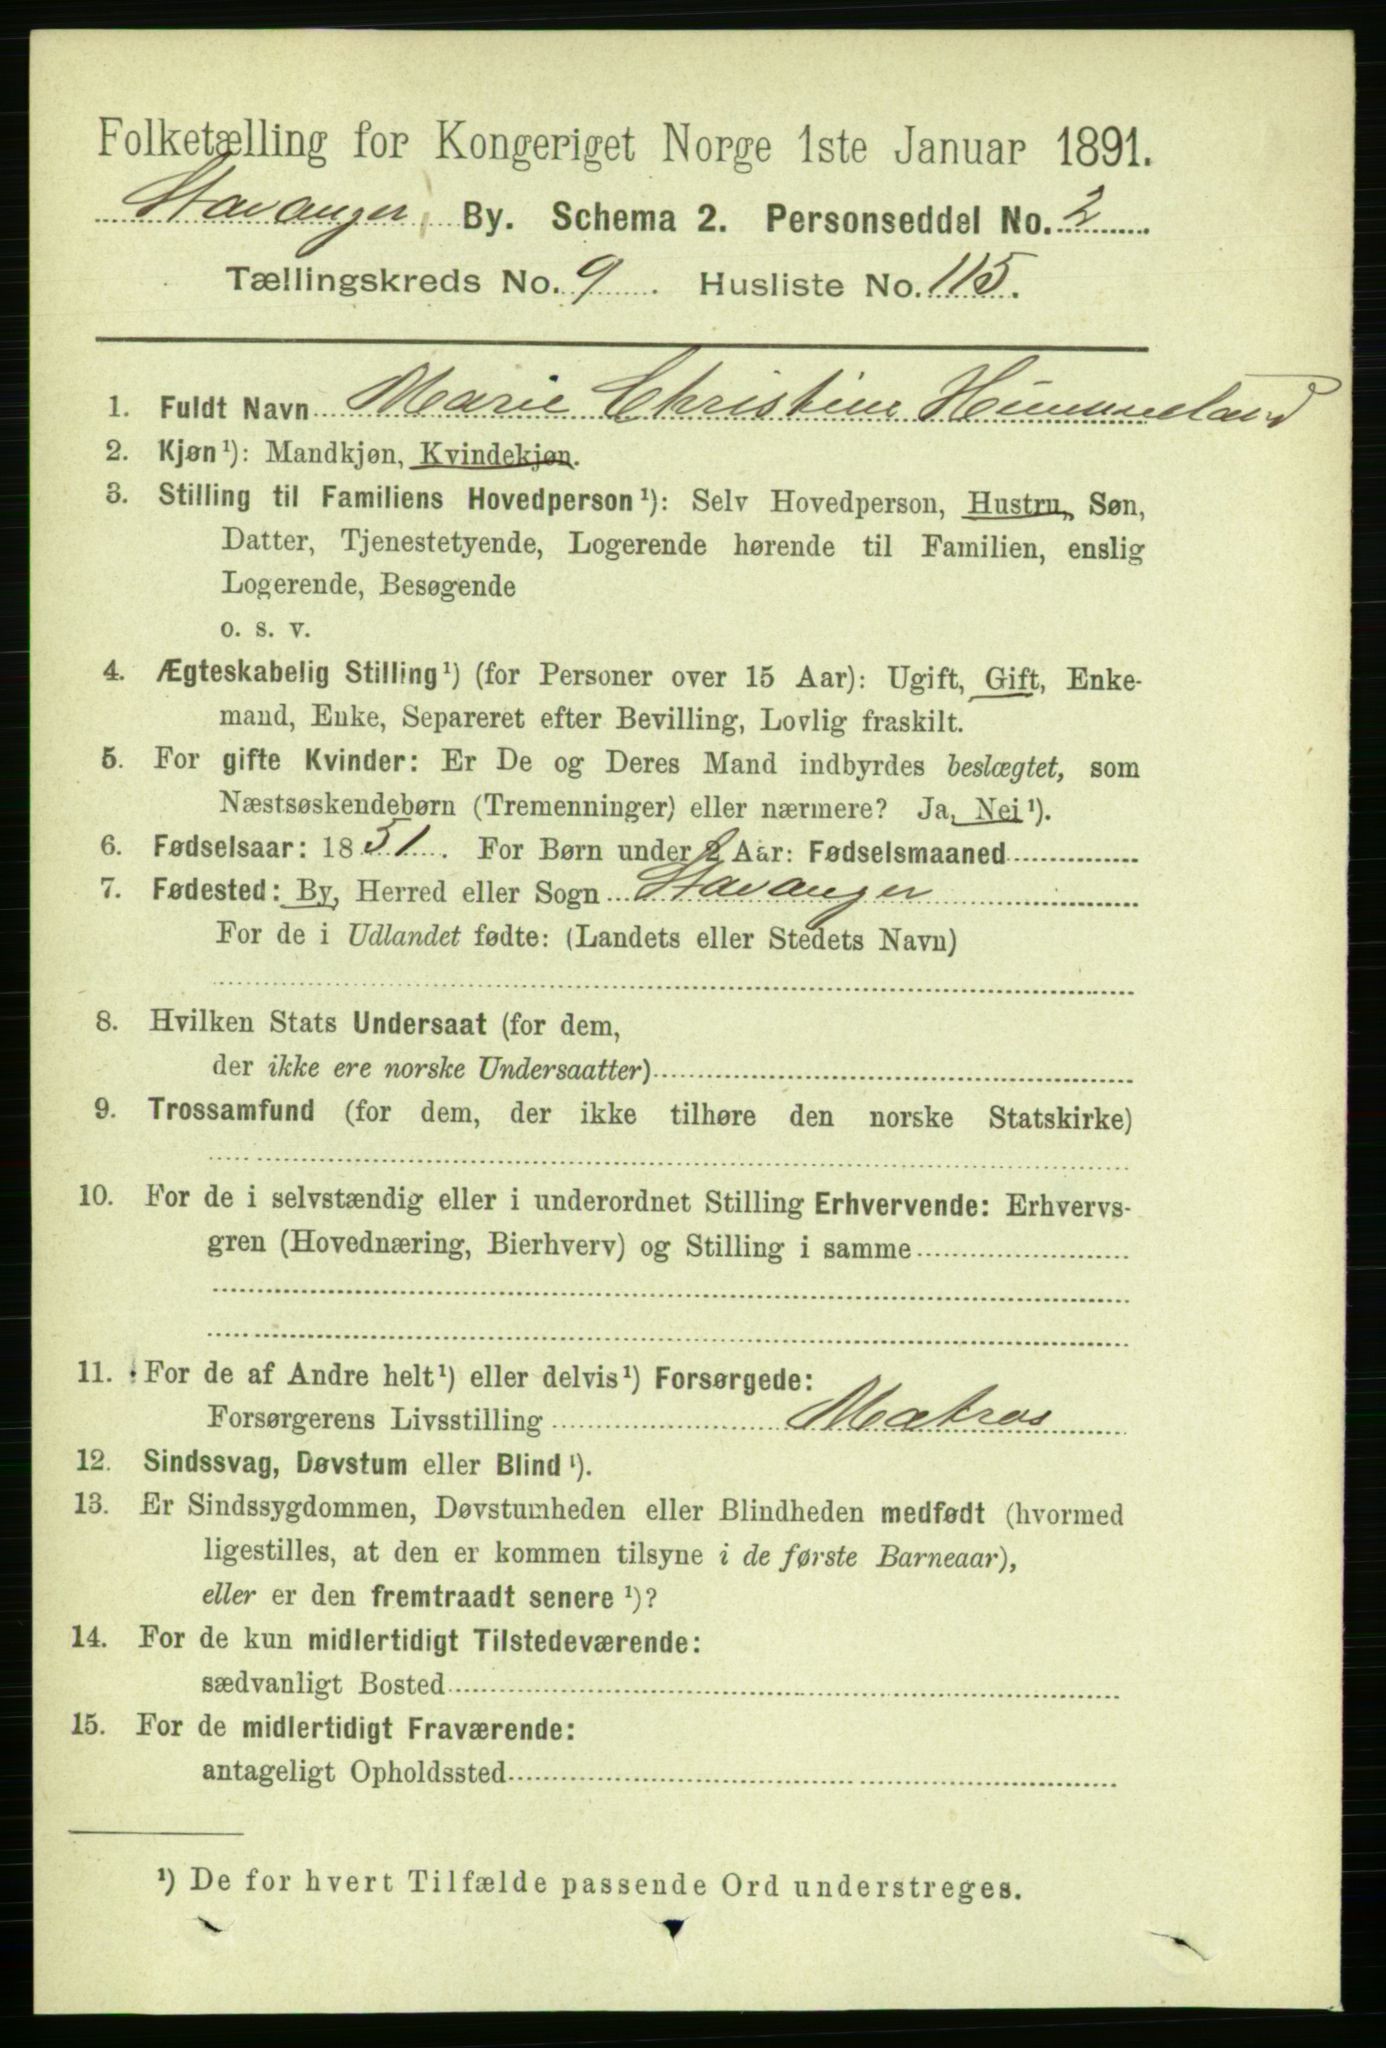 Folketælling for Kongeriget Norge 1ste Januar 1891.
Stavanger By. Schema 2. Personseddel No. 2
Tællingskreds No. 9. Husliste No. 115.
1. Fuldt Navn Marie Christine
2. Kjøn¹): Mandkjøn, Kvindekjøn.
3. Stilling til Familiens Hovedperson¹): Selv Hovedperson, Hustru, Søn,
Datter, Tjenestetyende, Logerende hørende til Familien, enslig
Logerende, Besøgende
o. s. v.
4. Ægteskabelig Stilling¹) (for Personer over 15 Aar): Ugift, Gift, Enke-
mand, Enke, Separeret efter Bevilling, Lovlig fraskilt.
5. For gifte Kvinder: Er De og Deres Mand indbyrdes beslægtet, som
Næstsøskendebørn (Tremenninger) eller nærmere? Ja, Nei¹).
6. Fødselsaar: 1851. For Børn under 2 Aar: Fødselsmaaned
7. Fødested: By, Herred eller Sogn Stavanger
For de i Udlandet fødte: (Landets eller Stedets Navn)
8. Hvilken Stats Undersaat (for dem,
der ikke ere norske Undersaatter)
9. Trossamfund (for dem, der ikke tilhøre den norske Statskirke)
10. For de i selvstændig eller i underordnet Stilling Erhvervende: Erhvervs-
gren (Hovednæring, Bierhverv) og Stilling i samme
11. For de af Andre helt¹) eller delvis¹) Forsørgede:
Forsørgerens Livsstilling Matros
12. Sindssvag, Døvstum eller Blind¹).
13. Er Sindssygdommen, Døvstumheden eller Blindheden medfødt (hvormed
ligestilles, at den er kommen tilsyne i de første Barneaar),
eller er den fremtraadt senere¹)?
14. For de kun midlertidigt Tilstedeværende:
sædvanligt Bosted
15. For de midlertidigt Fraværende:
antageligt Opholdssted
¹) De for hvert Tilfælde passende Ord understreges.